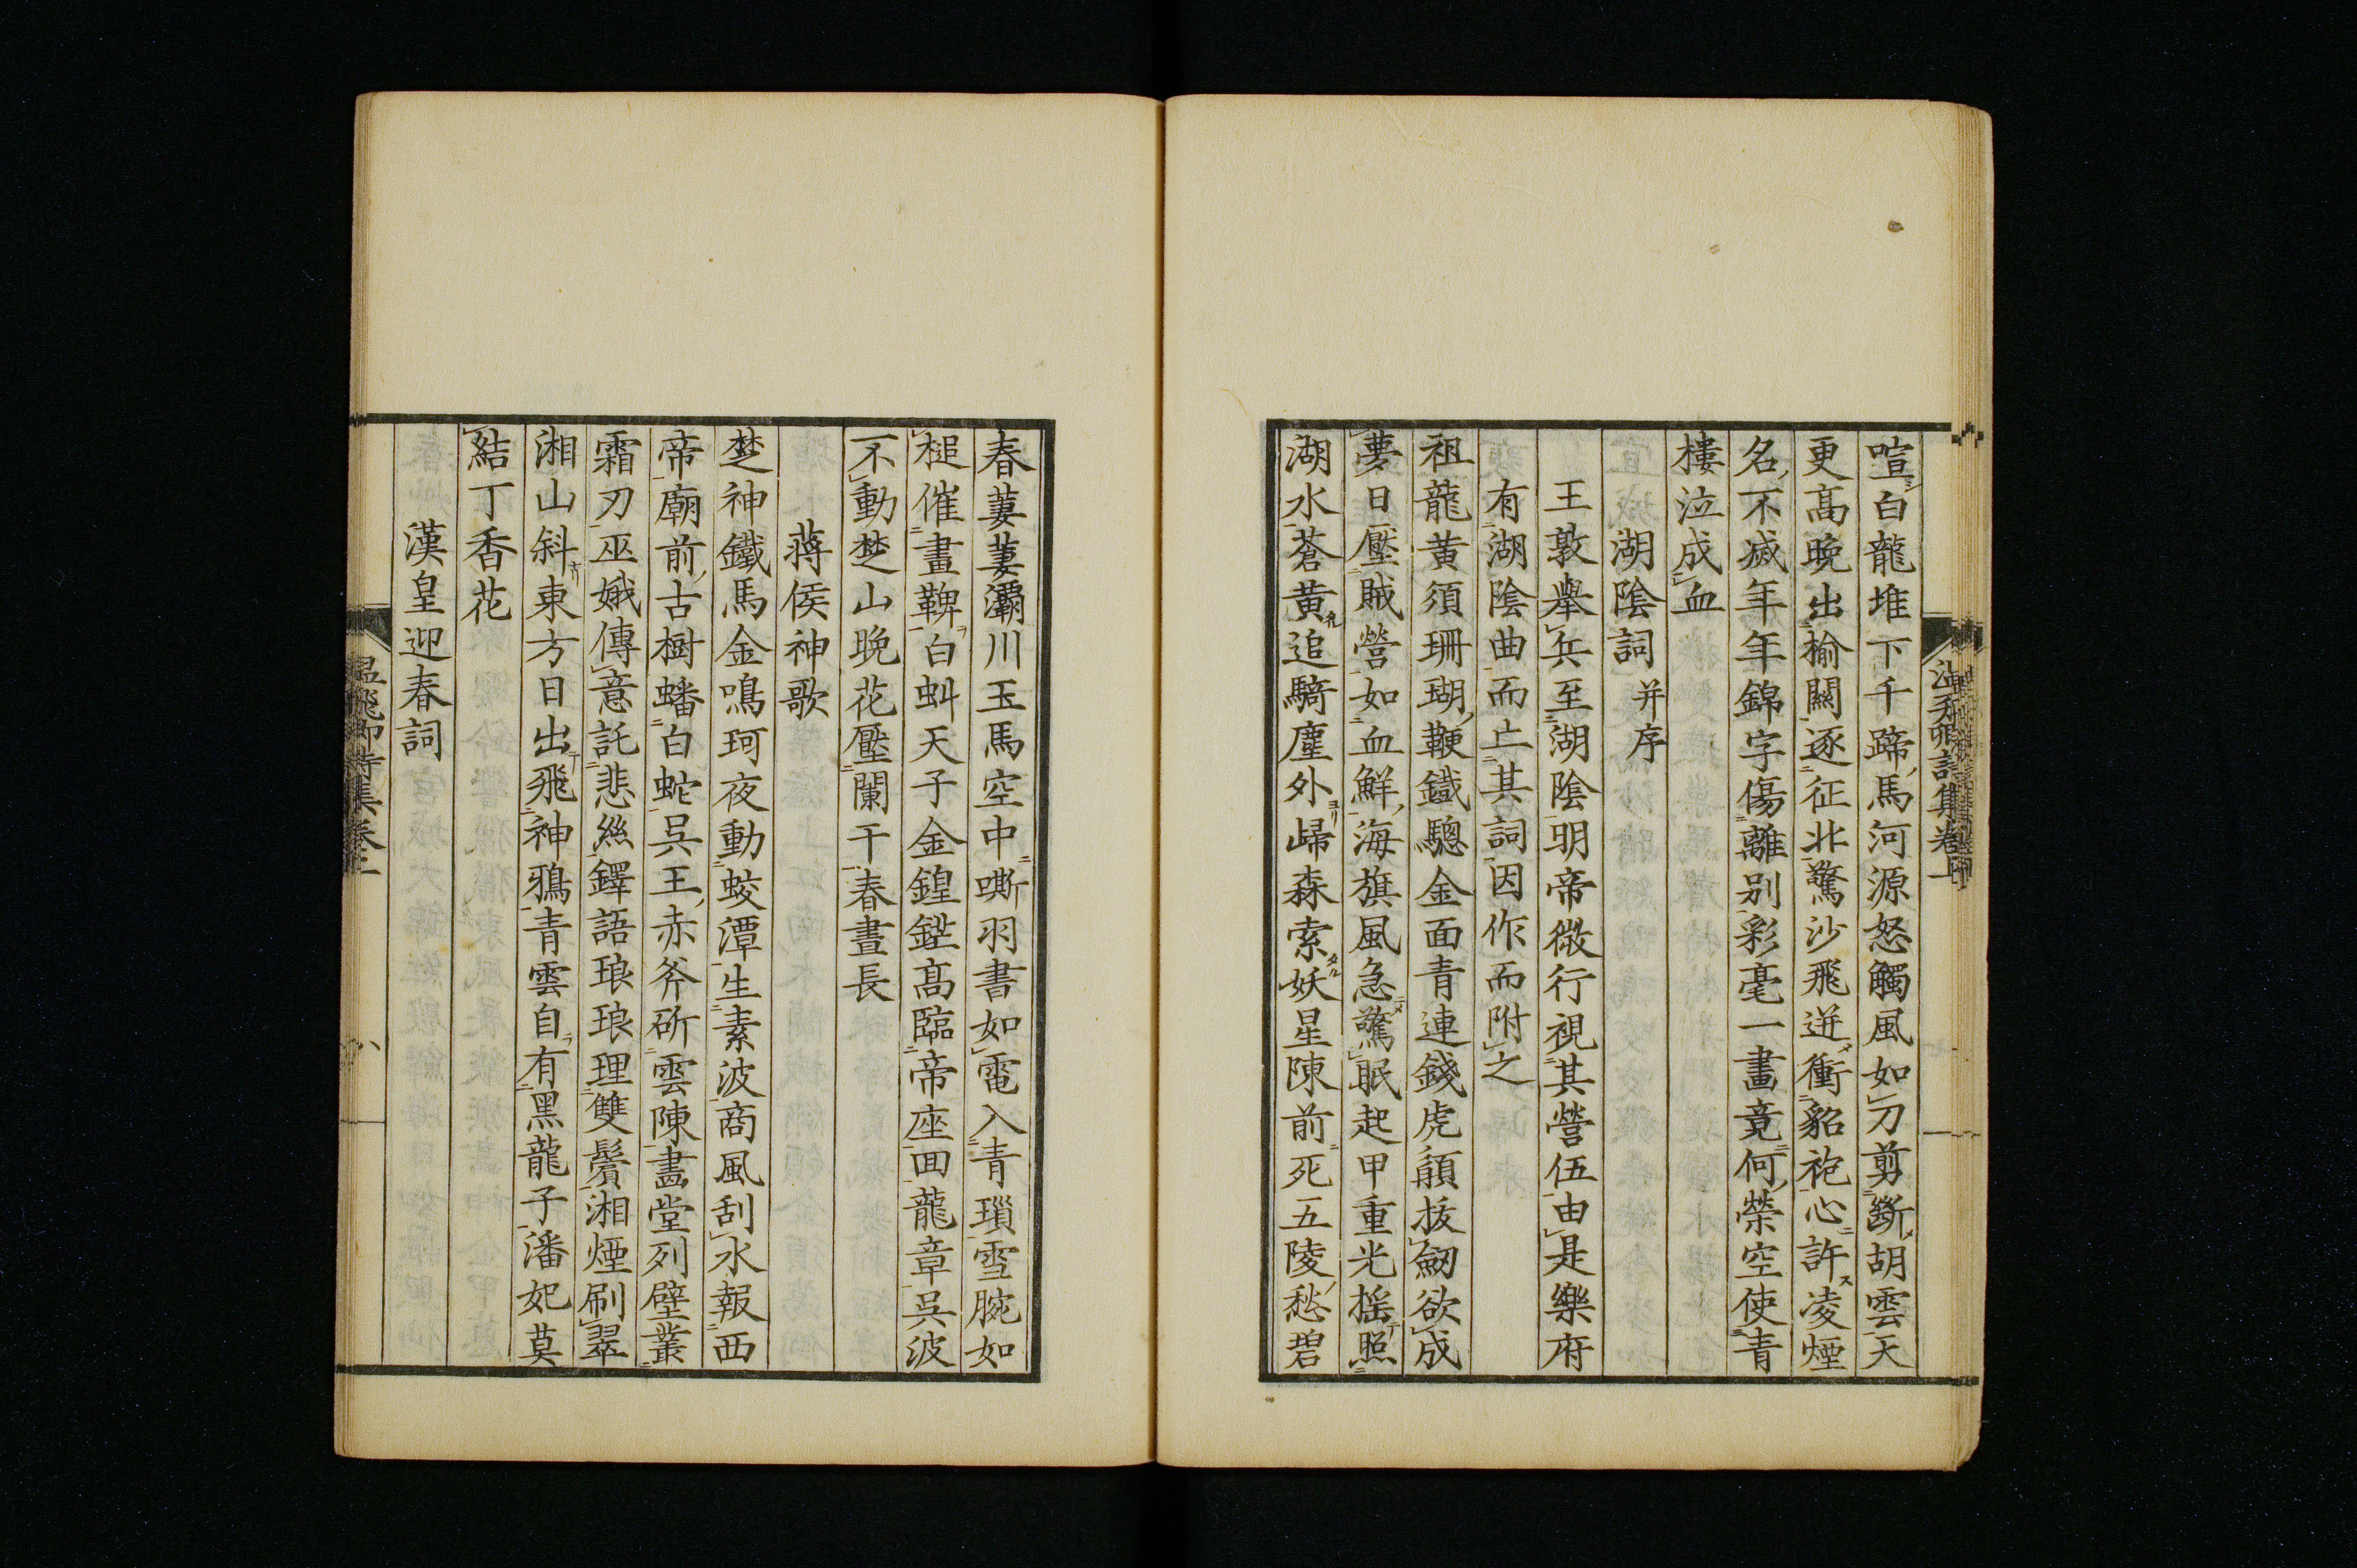 喧白龍堆下千蹄馬河源怒觸風如刀剪斷胡雲天
更高晚出榆關逐征北驚沙飛迸衝貂袍心許凌煙
名不滅年年錦字傷離别彩毫一畫竟何榮空使青
樓泣成血
湖陰詞并序
王敦舉兵至湖陰明帝微行視其營伍由是樂府
有湖陰曲而亡其詞因作而附之
祖龍黄須珊瑚鞭鐵驄金面青連錢虎䫙拔劒欲成
夢日壓賊營如血鮮海旗風急驚眠起甲重光摇照
湖水蒼黄追騎塵外歸森索妖星陳前死五陵愁碧
春萋萋灞川玉馬空中嘶羽書如電入青瑣雪腕如
槌催畫鞞白虯天子金鍠鋩高臨帝座回龍章吳波
不動楚山晚花壓闌干春晝長
蔣侯神歌
楚神鐵馬金鳴珂夜動蛟潭生素波商風刮水報西
帝廟前古樹蟠白蛇吳王赤斧斫雲陳畫堂列壁叢
霜刃巫娥傳意託悲絲鐸語琅琅理雙鬢湘煙刷翠
湘山斜東方日出飛神鴉青雲自有黑龍子潘妃莫
結丁香花
漢皇迎春詞
温飛卿詩集卷上
八